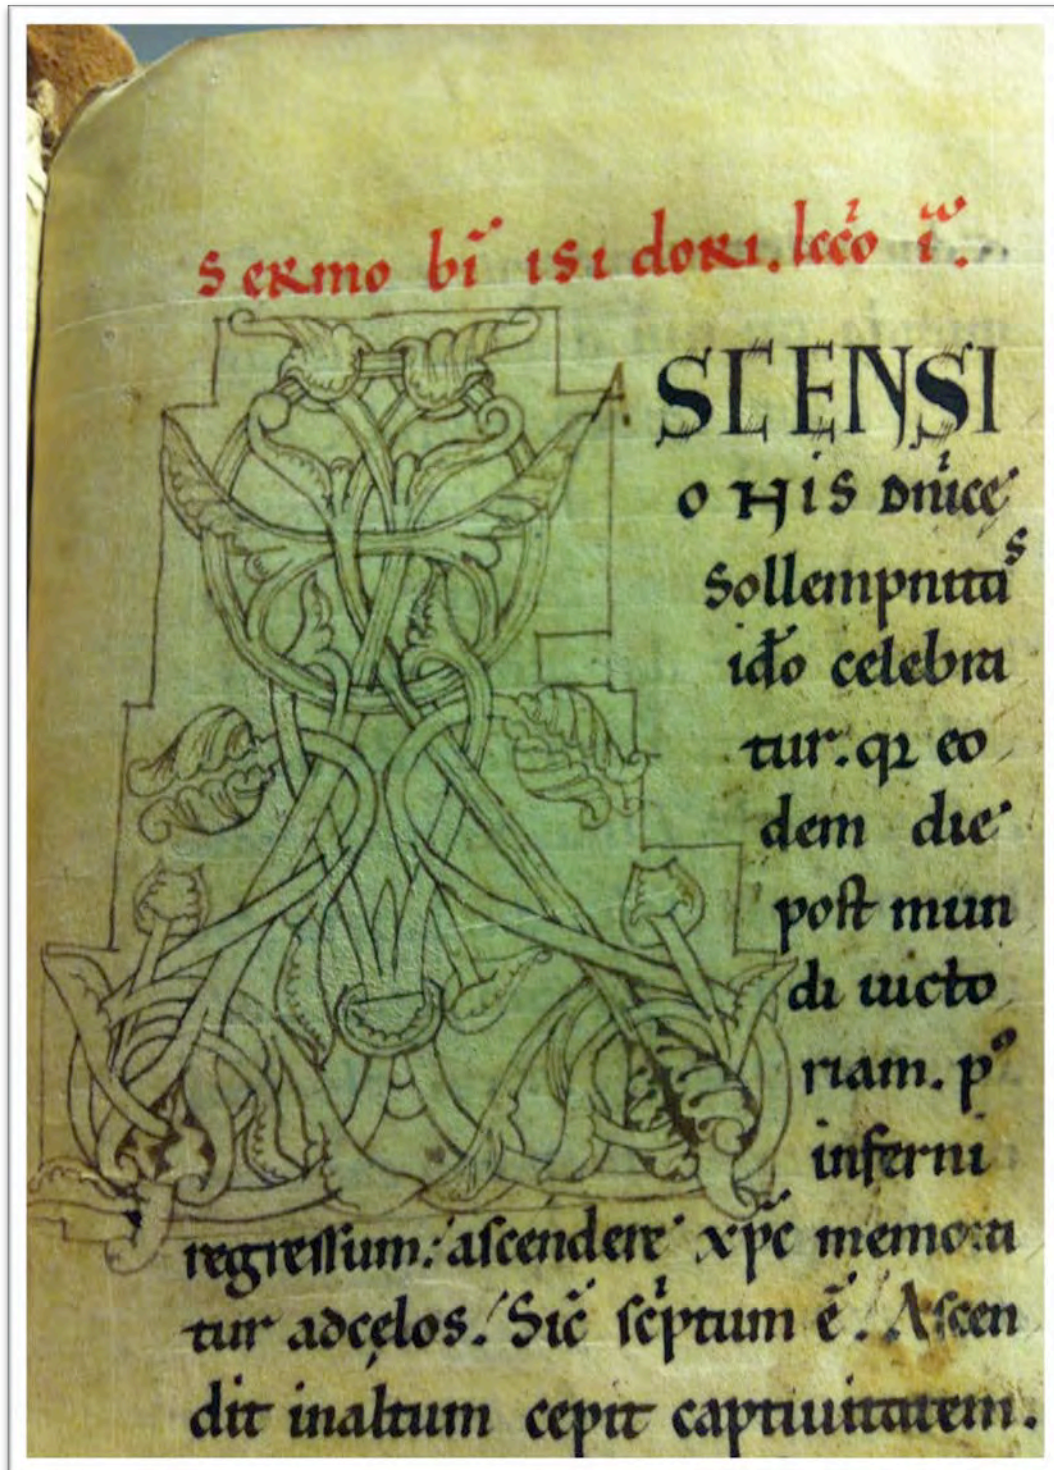 sermo bi̅ isidori. lcc̅o i.
A SCENSI
o his dn̅ice
sollempnitas
ido̅ celebra
tur. qꝛ eo
dem die
post mun
di uicto
riam. pº
inferni
regressum. ascendere xp̅c memora
tur adcęlos. Sic̅ sc̅ptum e̅. Ascen
dit inaltum cepit captiuitatem.